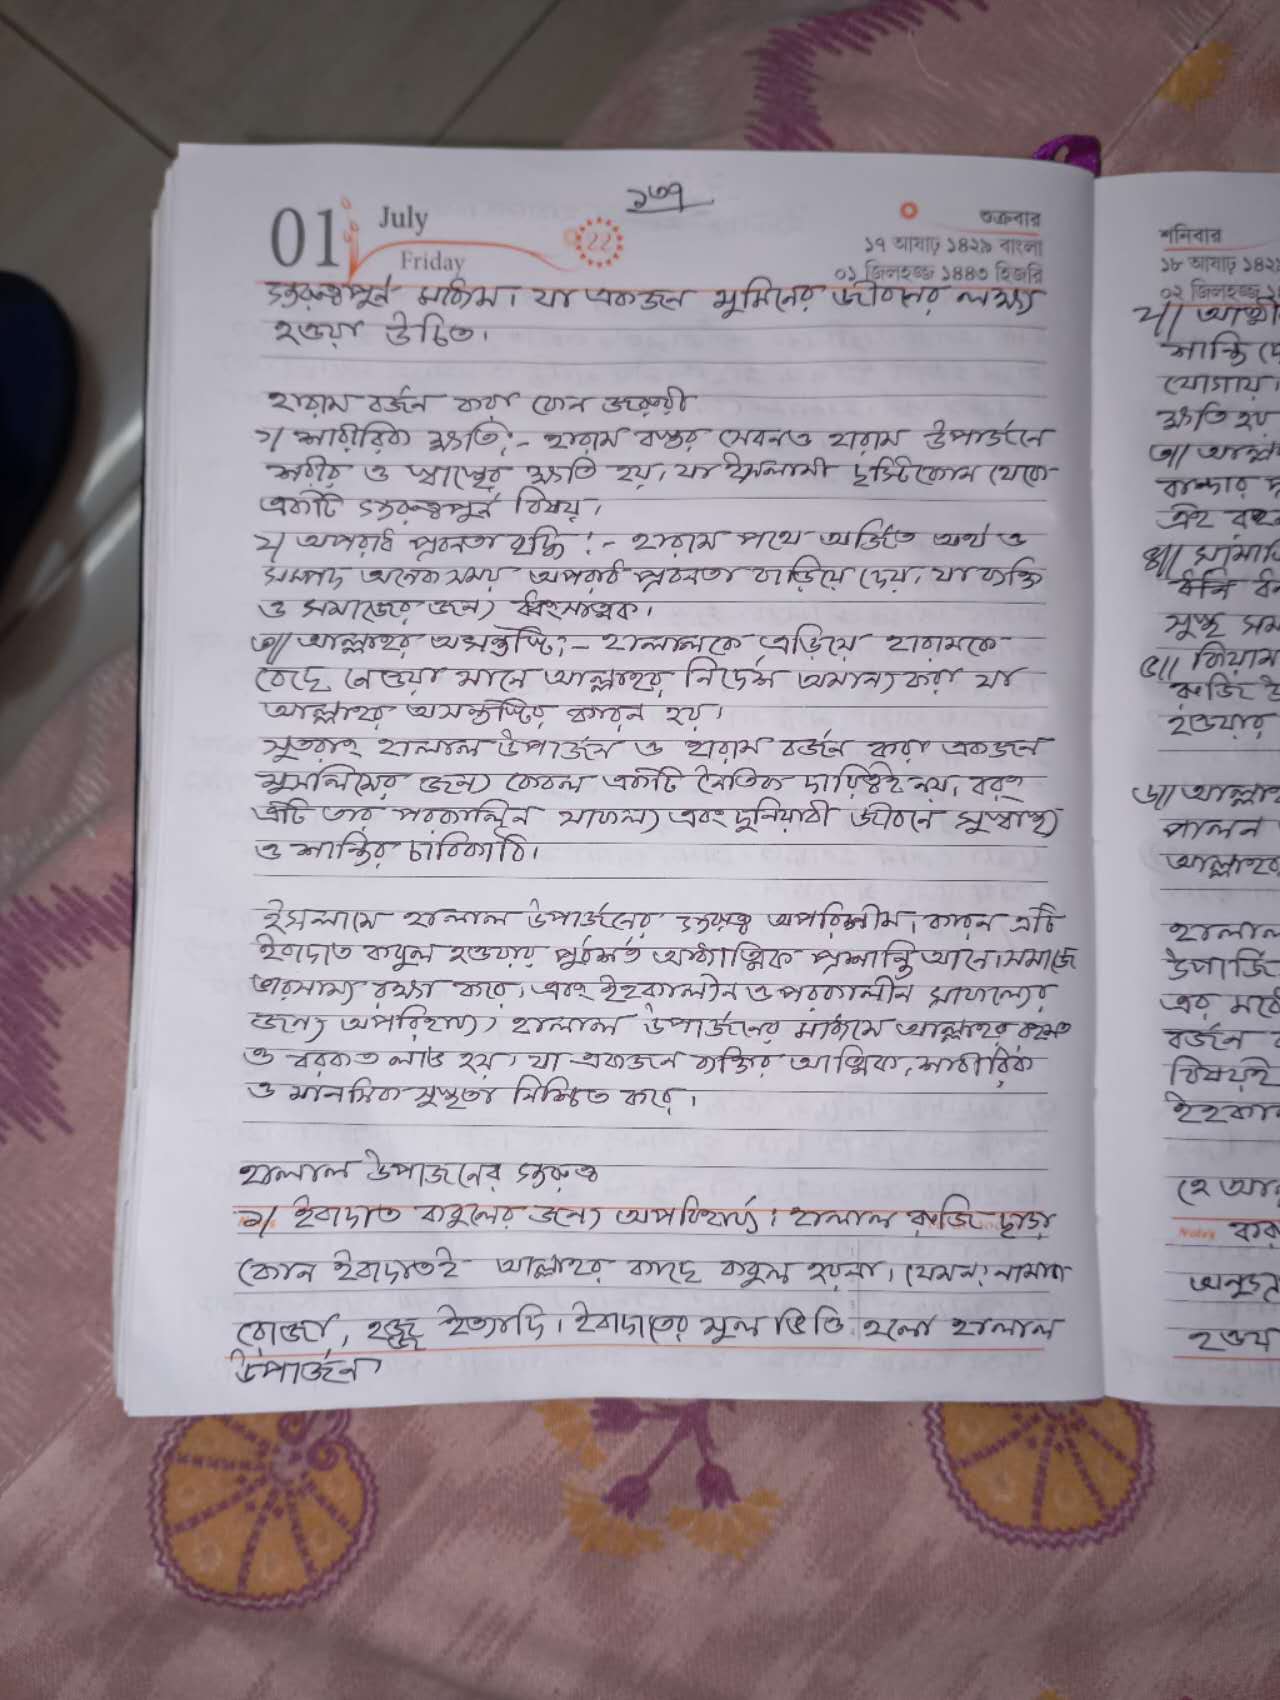 ১৩৭
01 July Friday 22
শুক্রবার
১৭ আষাঢ় ১৪২৯ বাংলা
০১ জিলহজ্জ ১৪৪৩ হিজরি
গুরুত্বপূর্ন মাধ্যম। যা একজন মুমিনের জীবনের লক্ষ্য
হওয়া উচিত।
হারাম বর্জন করা কেন জরুরী
১/ শারীরিক ক্ষতি:- হারাম বস্তুর সেবনও হারাম উপার্জনে
শরীর ও স্বাস্থ্যের ক্ষতি হয়, যা ইসলামী দৃষ্টিকোন থেকে
একটি গুরুত্বপূর্ন বিষয়।
২/ অপরাধ প্রবনতা বৃদ্ধি:- হারাম পথে অর্জিত অর্থ ও
সম্পদ অনেক সময় অপরাধ প্রবনতা বাড়িয়ে দেয়, যা ব্যক্তি
ও সমাজের জন্য ধ্বংসাত্মক।
৩// আল্লাহর অসন্তুষ্টি:- হালালকে এড়িয়ে হারামকে
বেছে নেওয়া মানে আল্লাহর নির্দেশ অমান্য করা যা
আল্লাহর অসন্তুষ্টির কারন হয়।
সুতরাং হালাল উপার্জন ও হারাম বর্জন করা একজন
মুসলিমের জন্য কেবল একটি নৈতিক দায়িত্বই নয়, বরং
এটি তার পরকালিন সাফল্য এবং দুনিয়াবী জীবনে সুস্বাস্থ্য
ও শান্তির চাবিকাঠি।
ইসলামে হালাল উপার্জনের গুরুত্ব অপরিসীম। কারন এটি
ইবাদাত কবুল হওয়ার পূর্বশর্ত আধ্যাত্মিক প্রশান্তি আনে। সমাজে
ভারসাম্য রক্ষা করে, এবং ইহকালীন ও পরকালীন সাফল্যের
জন্য অপরিহার্য, হালাল উপার্জনের মাধ্যমে আল্লাহর রহমত
ও বরকত লাভ হয়, যা একজন ব্যক্তির আত্মিক, শারীরিক
ও মানসিক সুস্থতা নিশ্চিত করে।
হালাল উপাজনের গুরুত্ব
১/ ইবাদাত কবুলের জন্য অপরিহার্য। হালাল রুজি ছাড়া
কোন ইবাদাতই আল্লাহর কাছে কবুল হয়না। যেমন: নামাজ
রোজা, হজ্জ ইত্যাদি। ইবাদাতের মূল ভিত্তি হলো হালাল
উপার্জন।
শনিবার
১৮ আষাঢ়
০২ জিলহজ্জ
২//
শান্তি
যোগায়।
ক্ষতি হয়
৩//
বান্দার
এই
৪//
সুস্থ
৫// কিয়াম
রুজি
হওয়ার
৬// আল্লাহ
পালন
আল্লাহর
হালাল
উপার্জ
এর
বর্জন
বিষয়ই
ইহকাল
হে
Notes
হওয়